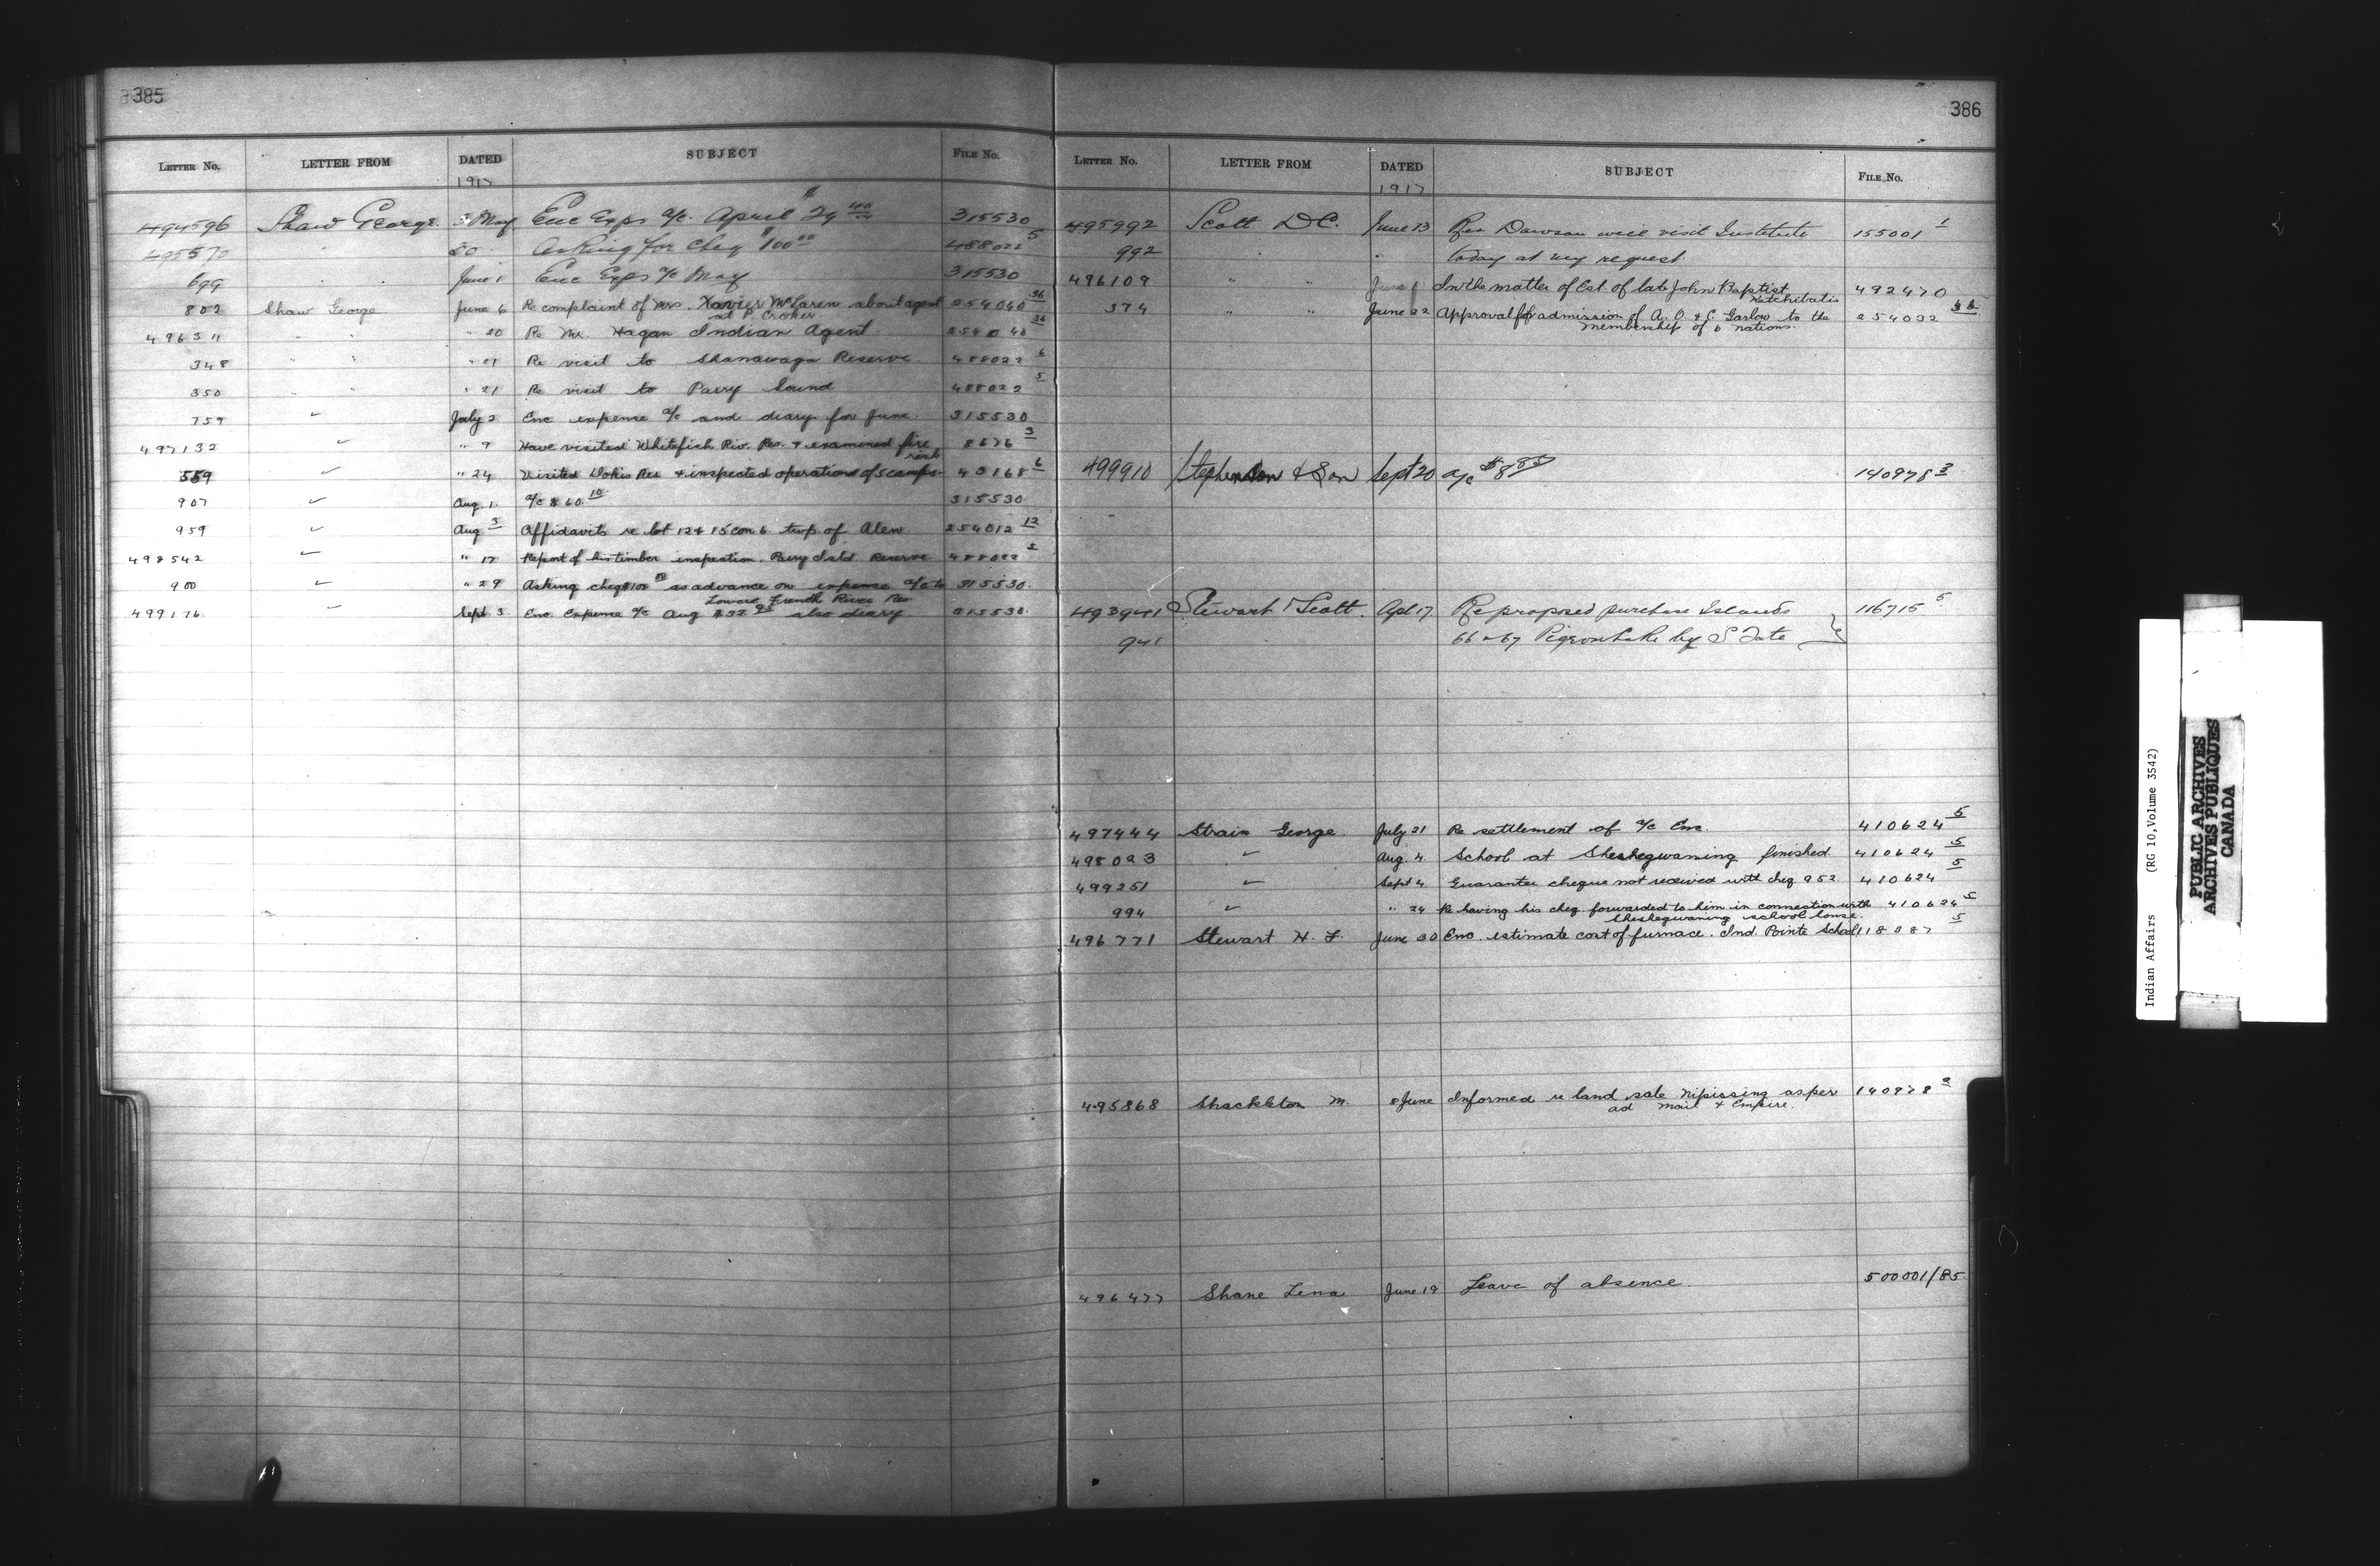 385
LETTER NO. LETTER FROM DATED SUBJECT FILE NO.
1917
494596 Shaw George 3 May Enc Exps a/c. April $29 40 315530
495570 20 Asking for cheq $100 00 488022 5
699 " " June 1 Enc Exps a/c May 315530
802 Shaw George June 6 Re complaint of Mrs. Xavier McLaren about agent 254040 36
at P. Croker
496311 " " " 20 Re Mr. Hagan Indian Agent 254040 36
348 " " " 21 Re visit to Shanawaga Reserve 488022 6
350 " " " 21 Re visit to Parry Sound 488022 5
759 " July 2 Enc expense a/c and diary for June 315530
497132 " " 9 Have visited Whitefish Riv. Res. & examined fire 8676 3
559 " " 24 Visited Dokis Res & inspected operations of 5 camps 43168 6
907 " Aug. 1 a/c $60 10 315530
959 " Aug 3 Affidavits re lot 12 & 15 con 6 twp. of Alen 254012 12
498542 " " 17 Report of his timber inspection. Parry Isld Reserve 488022 5
900 " " 29 Asking cheq $100 00 as advance on expense a/c to 315530
Lower French River Res
499176 " Sept 3 Enc Expense a/c Aug $32 95 also diary 315530
386
LETTER NO. LETTER FROM DATED SUBJECT FILE NO.
1917
495992 Scott D C. June 13 Rev Dawson will visit Institute 155001 1
992 " today at my request.
496109 " " June 1 In the matter of Est. of late John Baptist 492470
Ketchibatis
374 " " June 22 Approval for admission of A. O. & C. Garlow to the 254032
membership of 6 nations.
499910 Stephenson & Son Sept 20 a/c $8 85 140978 3
493941 Stewart & Scott. Apl 17 Re proposed purchase Islands 116715 5
941 66 & 67 Pigeon Lake by S Tate
497444 Strain George July 21 Re settlement of a/c Enc. 410624 5
498023 " Aug. 4 School at Sheshegwaning finished. 410624 5
499251 " Sept 4 Guarantee cheque not received with cheq 952 410624 5
994 " " 24 Re having his cheq. forwarded to him in connection with 410624 5
Sheshegwaning school house.
496771 Stewart H. L. June 30 Enc. estimate cost of furnace. Ind. Pointe School 118387 5
495868 Shackleton M. 8 June Informed re land sale Nipissing as per 140978 3
ad mail & Empire.
496477 Shane Lena June 19 Leave of absence 500001/85
Indian Affairs (RG 10, Volume 3542)
PUBLIC ARCHIVES
ARCHIVES PUBLIQUES
CANADA